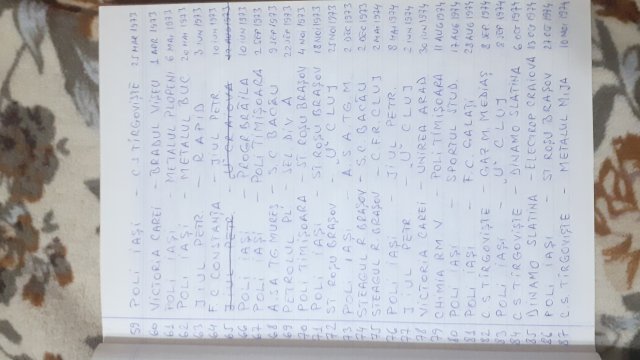 59 POLI IAȘI - C S TÎRGOVIȘTE 25 MAR 1973
60 VICTORIA CAREI - BRADUL VIȘEU 1 APR 1973
61 POLI IAȘI - METALUL PLOPENI 6 MAI 1973
62 POLI IAȘI - METALUL BUC 20 MAI 1973
63 JIUL PETR - RAPID 3 IUN 1973
64 F.C CONSTANȚA - JIUL PETR 10 IUN 1973
65 JIUL PETR - U CRAIOVA 1973
66 POLI IAȘI - PROGR BRĂILA 10 IUN 1973
67 POLI IAȘI - POLI TIMIȘOARA 2 SEP 1973
68 A.S.A TG. MUREȘ - S C BACĂU 9 SEP 1973
69 PETROLUL PL - SEL DIV A 22 SEP 1973
70 POLI TIMIȘOARA - ST ROȘU BRAȘOV 4 NOI 1973
71 POLI IAȘI - ST ROȘU BRAȘOV 18 NOI 1973
72 ST ROȘU BRAȘOV - U CLUJ 25 NOI 1973
73 POLI IAȘI - A.S.A TG. M. 2 DEC 1973
74 STEAGUL R BRAȘOV - S.C. BACĂU 2 DEC 1973
75 STEAGUL R. BRAȘOV - C.F.R. CLUJ 2 MAI 1974
76 POLI IAȘI - JIUL PETR. 8 MAI 1974
77 JIUL PETR - U CLUJ 2 IUN 1974
78 VICTORIA CAREI - UNIREA ARAD 30 IUN 1974
79 CHIMIA RM V. - POLI TIMIȘOARA 11 AUG 1974
80 POLI IAȘI - SPORTUL STUD. 17 AUG 1974
81 POLI IAȘI - F.C. GALAȚI 28 AUG 1974
82 C S TÎRGOVIȘTE - GAZ M. MEDIAȘ 8 SEP 1974
83 POLI IAȘI - U CLUJ 8 SEP 1974
84 C.S TÎRGOVIȘTE - DINAMO SLATINA 6 OCT 1974
85 DINAMO SLATINA - ELECTROP CRAIOVA 13 OCT 1974
86 POLI IAȘI - ST ROȘU BRAȘOV 27 OCT 1974
87 C.S. TÎRGOVIȘTE - METALUL MIJA 10 NOI 1974